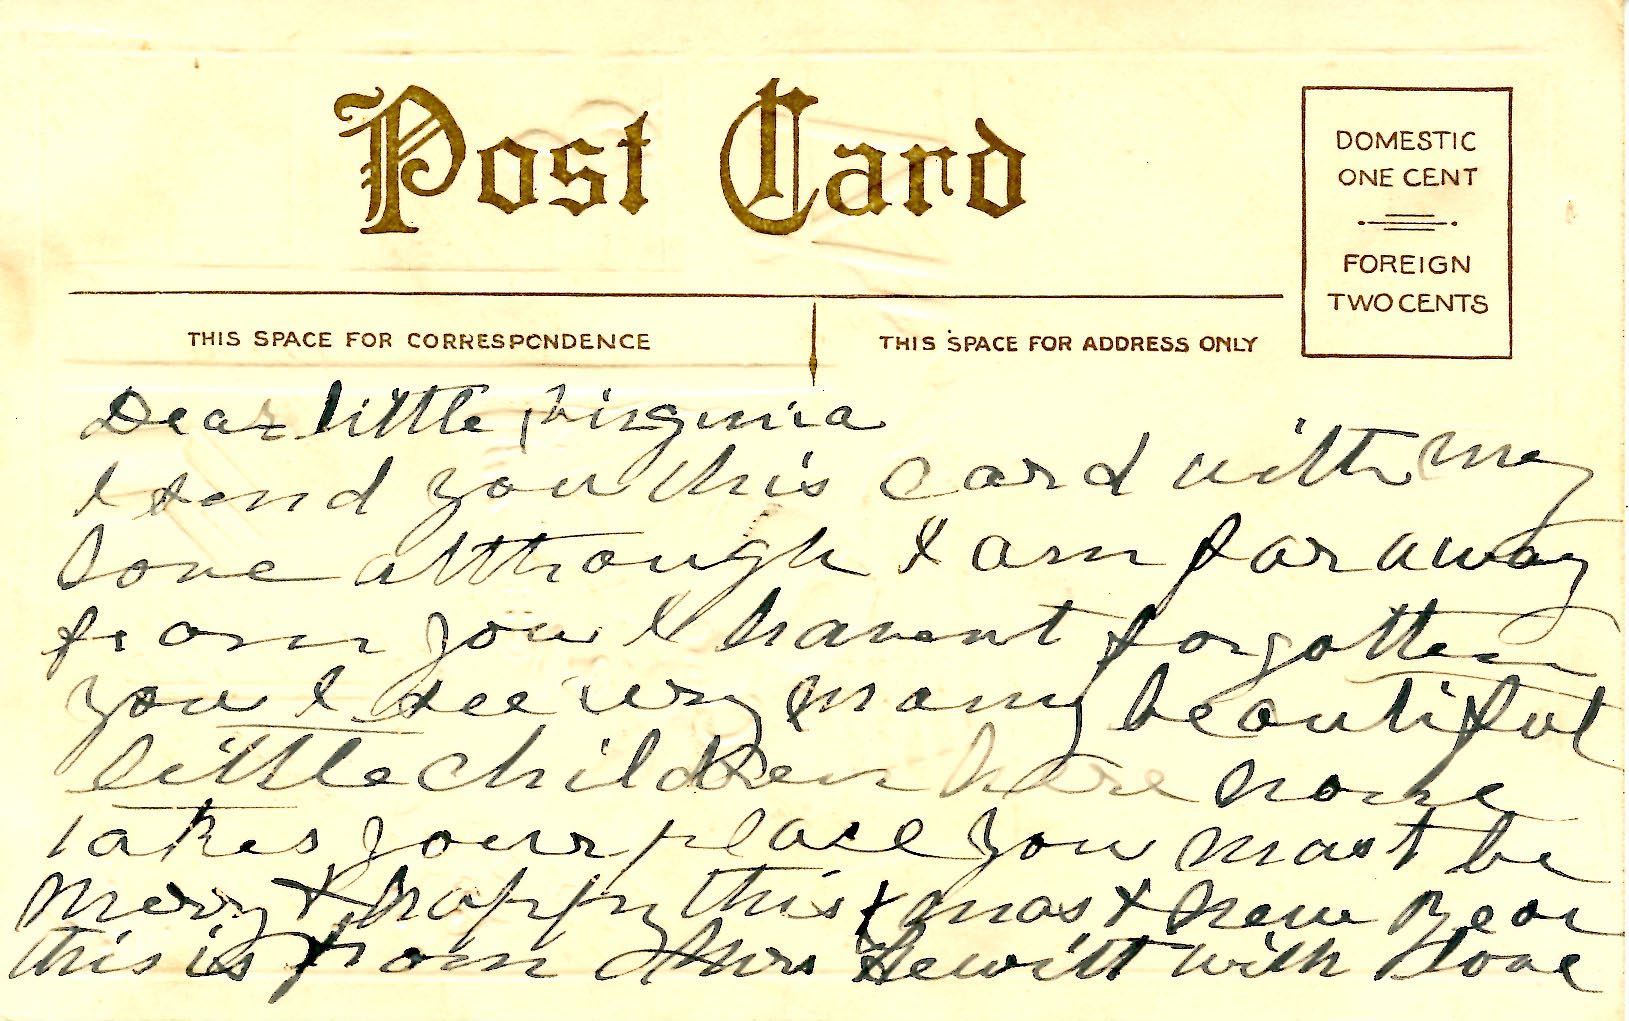 Post Card
DOMESTIC
ONE CENT
FOREIGN
TWO CENTS
THIS SPACE FOR CORRESPONDENCE
THIS SPACE FOR ADDRESS ONLY
Dear little Virginia
I send you this card with my
love although I am far away
from you I havent forgotten
you I see very many beautiful
little children here none
takes your place you must be
merry & happy this xmas & new Year
this is from Mrs Hewitt with love